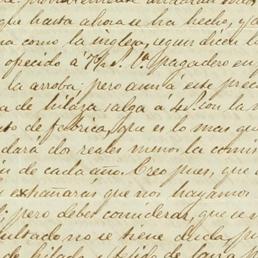 que hasta ahora se ha hecho, y a
na como la inglesa, segun dicen l
ofrecido á 7 pagadero en
la arroba; pero aun á este preci
a de hilaza salga a 4 con la m
to de fabrica, que es lo mas qu
dará dos reales menos la comi
n de cada año. Creo pues, que
extrañarás que nos hayamos
; pero debes considerar, que se
sultado no se tiene duda, p
de hilado